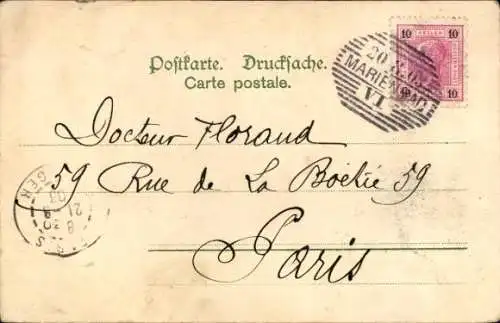 Postkarte. Drucksache.
Carte postale.
10 HELLER 10
10 10
20
MARIENBAD
VI
Docteur Florand
59 Rue de La Boëtie 59
Paris
21
8 30
03